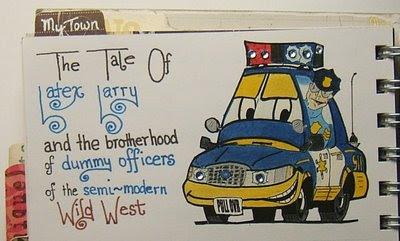 My Town
The Tale Of
Latex Larry
and the brotherhood
of dummy officers
of the semi~modern
Wild West
PULL OVR
911